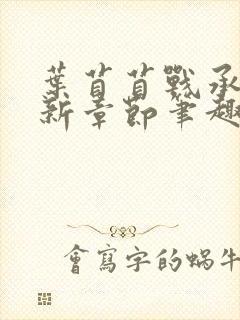 葉苜苜戰承
新章節筆趣
會寫字的蝸牛